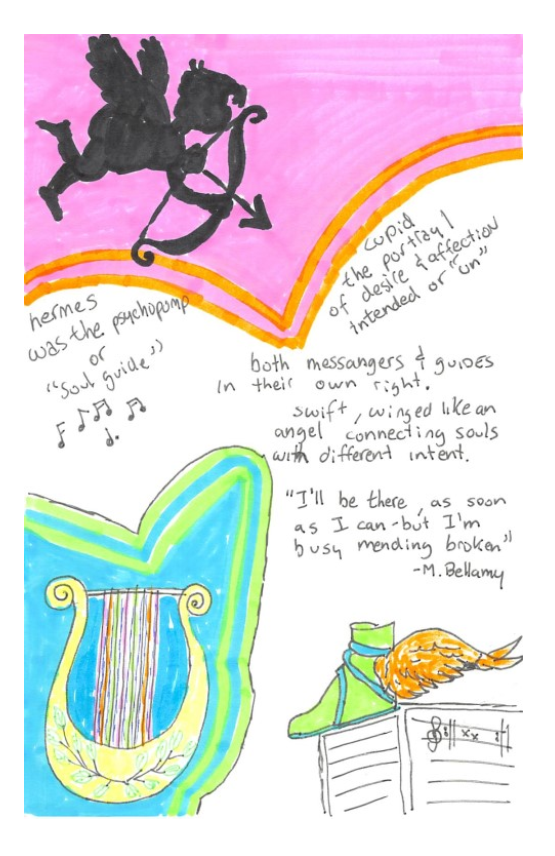 cupid
the portrayl
of desire & affection
intended or "un"
hermes
was the psychopomp
or
"soul guide"
both messangers & guides
in their own right.
swift, winged like an
angel connecting souls
with different intent.
"I'll be there, as soon
as I can - but I'm
busy mending broken"
-M. Bellamy